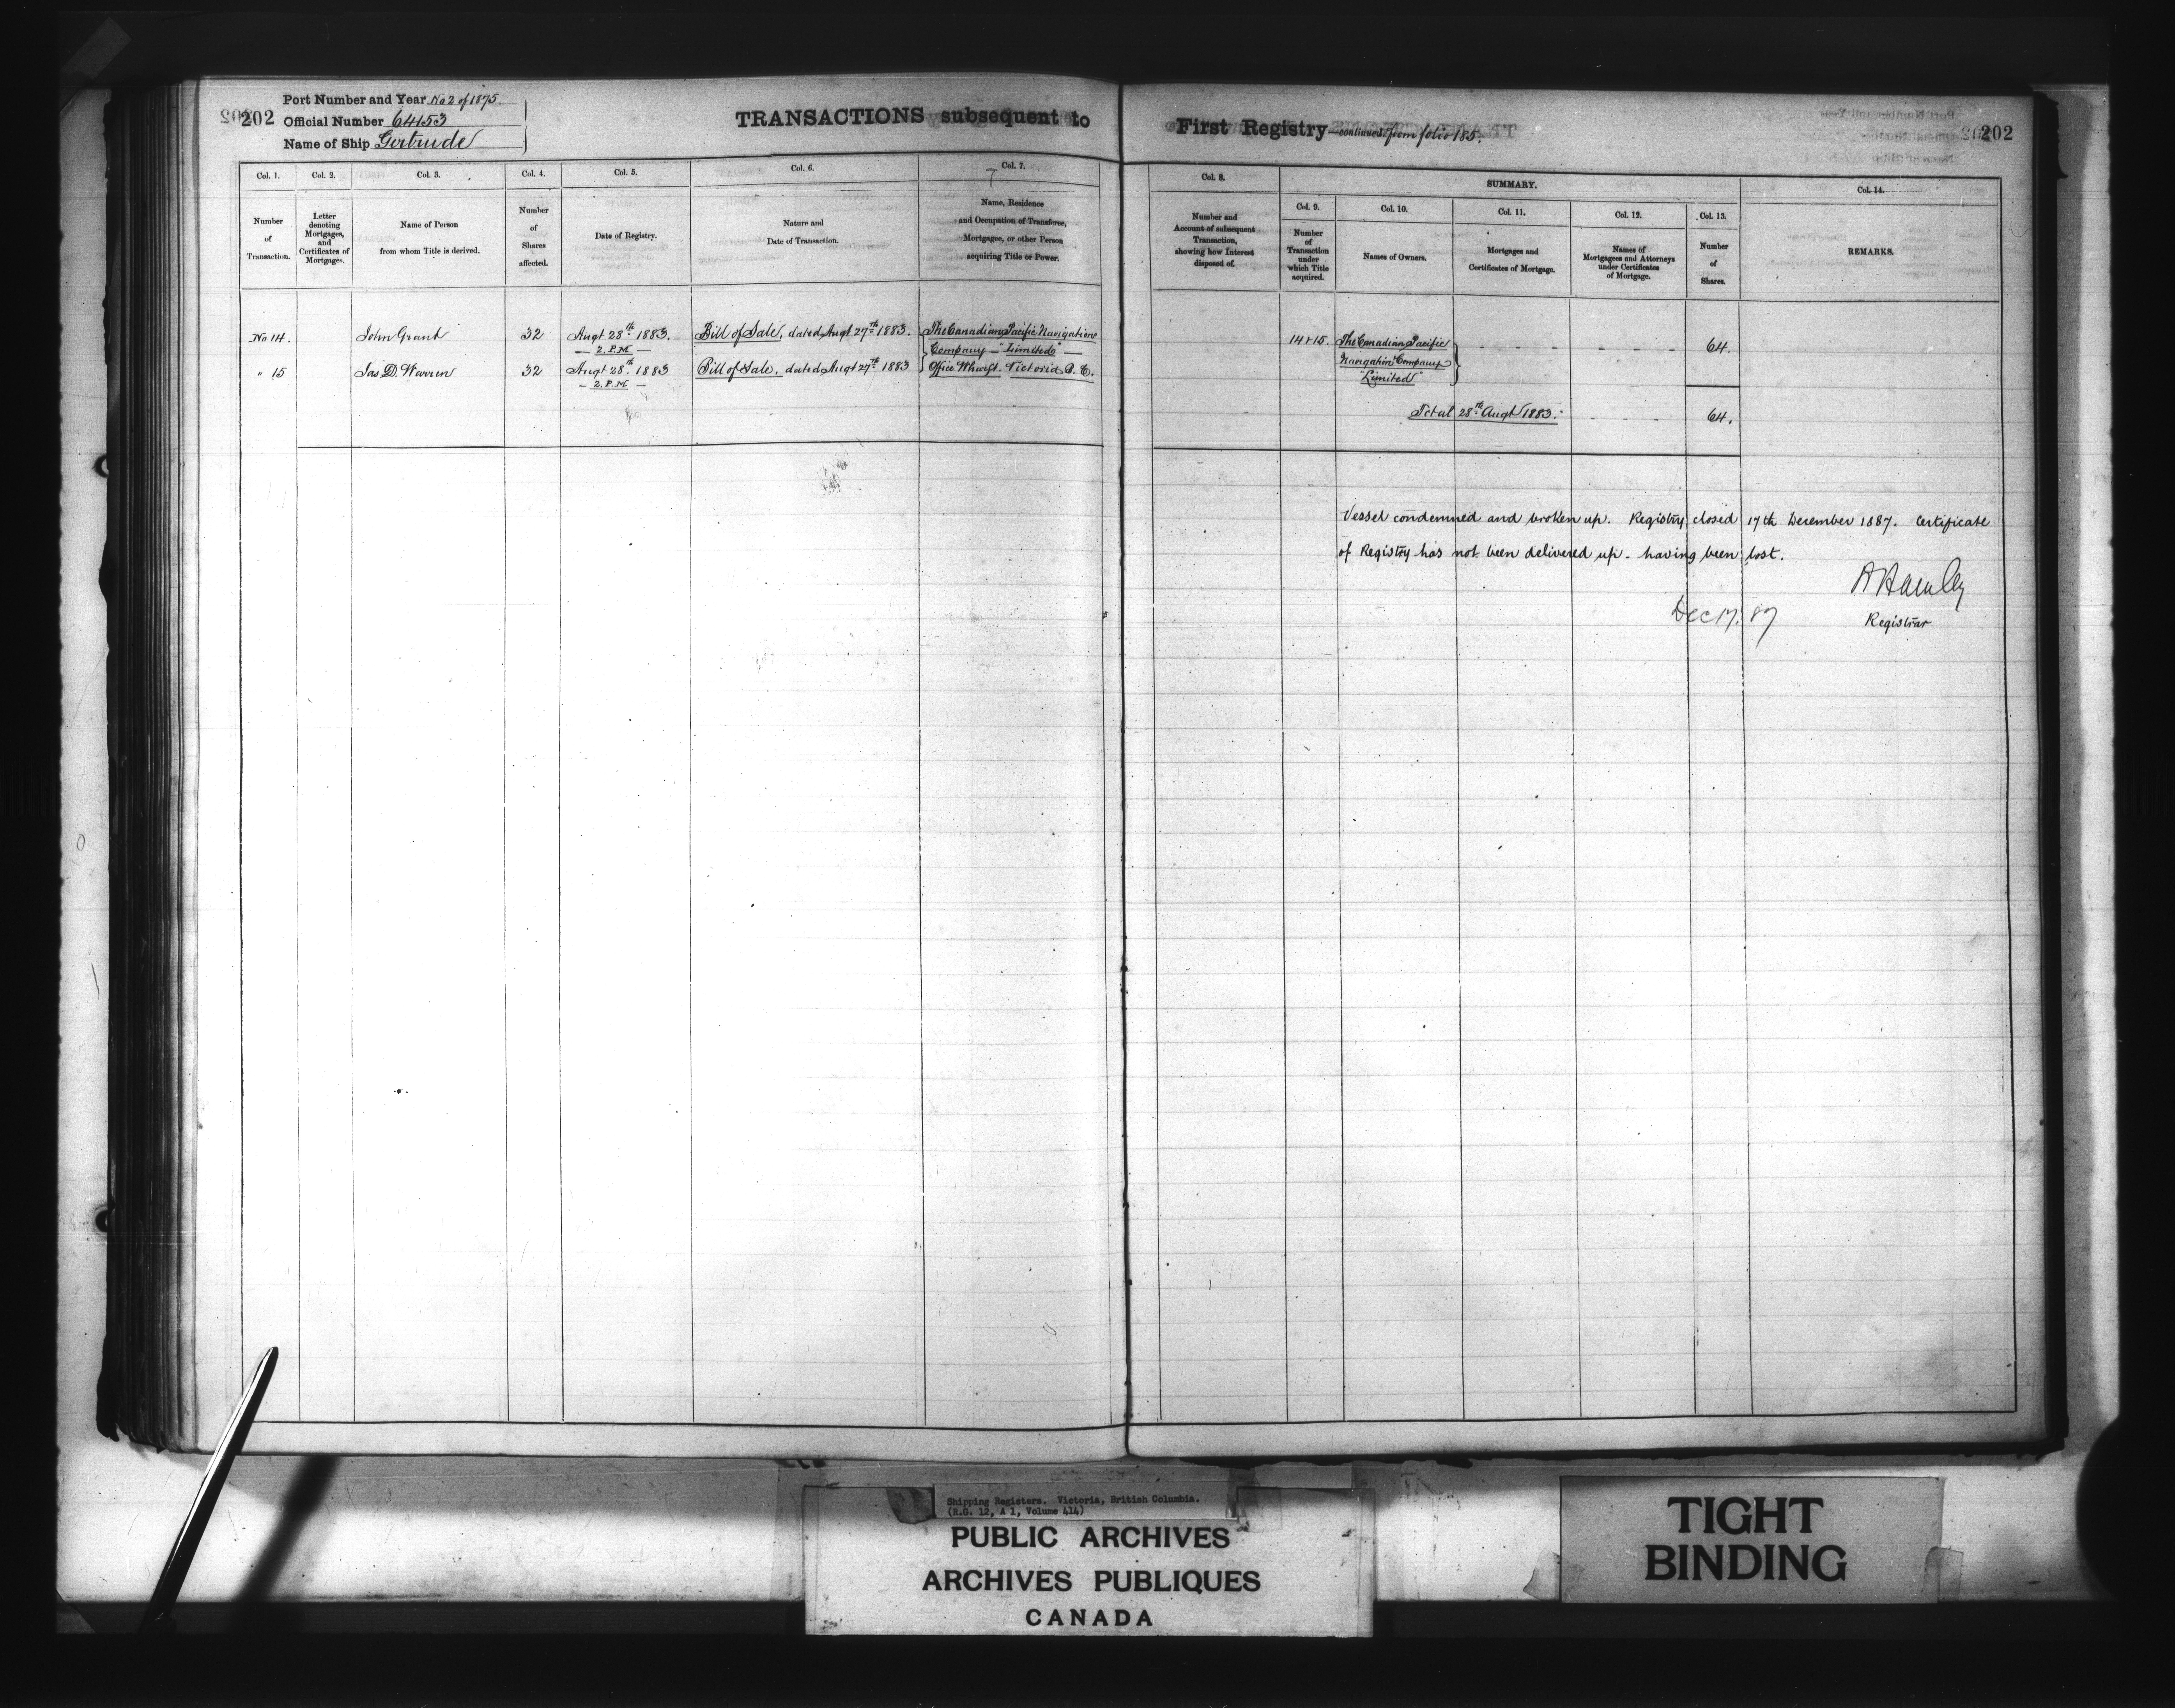 202
Port Number and Year No 2 of 1875
Official Number 64153
Name of Ship Gertrude
TRANSACTIONS subsequent to
Col. 1.
Col. 2.
Col. 3.
Col. 4.
Col. 5.
Col. 6.
Col. 7.
Number
of
Transaction.
Letter
denoting
Mortgages,
and
Certificates of
Mortgages.
Name of Person
from whom Title is derived.
Number
of
Shares
affected.
Date of Registry.
Nature and
Date of Transaction.
Name, Residence
and Occupation of Transferee,
Mortgagee, or other Person
acquiring Title or Power.
No 14. John Grant 32 Augt 28th 1883. Bill of Sale, dated Augt 27th 1883. The Canadian Pacific Navigation
2. P.M Company "Limited"
" 15 Jas D. Warren 32 Augt 28th 1883 Bill of Sale, dated Augt 27th 1883 Office Wharf. Victoria B. C.
2. P.M
First Registry—continued from folio 185.
202
Col. 8.
SUMMARY.
Col. 14.
Col. 9.
Col. 10.
Col. 11.
Col. 12.
Col. 13.
Number and
Account of subsequent
Transaction,
showing how Interest
disposed of.
Number
of
Transaction
under
which Title
acquired.
Names of Owners.
Mortgages and
Certificates of Mortgage.
Names of
Mortgagees and Attorneys
under Certificates
of Mortgage.
Number
of
Shares.
REMARKS.
14 & 15. The Canadian Pacific 64.
Navigation Company
"Limited"
Total 28th Augt 1883. 64.
Vessel condemned and broken up. Registry closed 17th December 1887. Certificate
of Registry has not been delivered up - having been lost.
Dec 17. 87
Registrar
Shipping Registers. Victoria, British Columbia.
(R.G. 12, A 1, Volume 414)
PUBLIC ARCHIVES
ARCHIVES PUBLIQUES
CANADA
TIGHT
BINDING